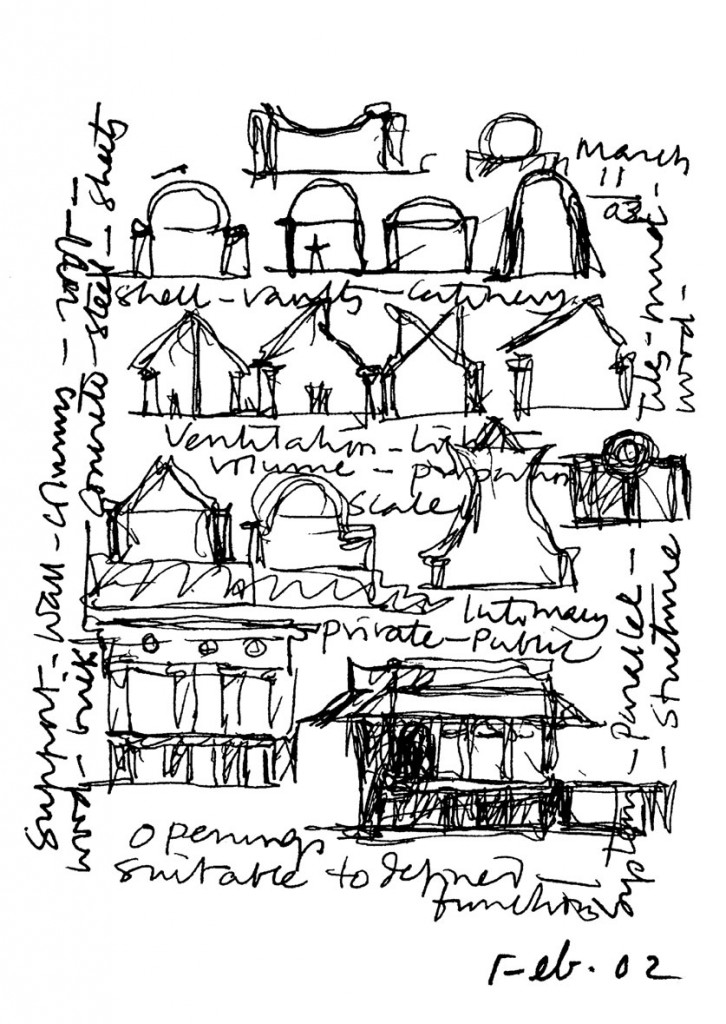 March
11
03
Shell-vaults-catinery
Ventilation-Light
volume-proportion
scale
Intimacy
private-public
openings
suitable to defined-
functions
Feb. 02
support-wall-columns-roof-
wood-brick concrete-steel-sheets
Tiles-mud-
wood-
systems-parallel-
-structure